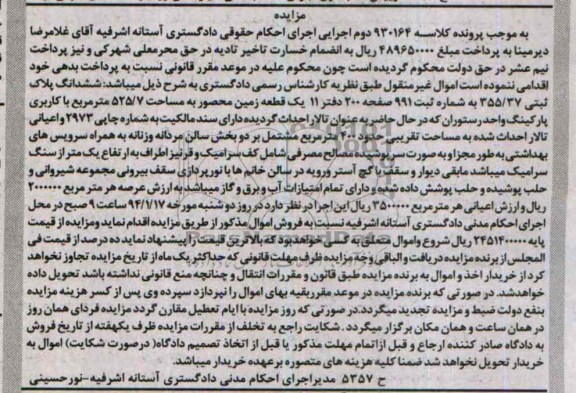 مزایده
به موجب پرونده کلاسه ۹۳۰۱۶۴ دوم اجرایی اجرای احکام حقوقی دادگستری آستانه اشرفیه آقای غلامرضا
دیرمینا به پرداخت مبلغ ۴۸۹۶۵۰۰۰۰ ریال به انضمام خسارت تاخیر تادیه در حق محرمعلی شهرکی و نیز پرداخت
نیم عشر در حق دولت محکوم گردیده است چون محکوم علیه در موعد مقرر قانونی نسبت به پرداخت بدهی خود
اقدامی ننموده است اموال غیر منقول طبق نظریه کارشناس رسمی دادگستری به شرح ذیل میباشد: ششدانگ پلاک
ثبتی ۳۵۵/۳۷ به شماره ثبت ۹۹۱ صفحه ۲۰۰ دفتر ۱۱ یک قطعه زمین محصور به مساحت ۵۲۵/۷ مترمربع با کاربری
پارکینگ واحد رستوران که در حال حاضر به عنوان تالار احداث گردیده دارای سند مالکیت به شماره چاپی ۲۹۷۳ و اعیانی
تالار احداث شده به مساحت تقریبی حدود مترمربع مشتمل بر دو بخش سالن مردانه وزنانه به همراه سرویس های
بهداشتی به طور مجزا و به صورت سرپوشیده مصالح مصرفی شامل کف سرامیک و قرنیز اطراف به ارتفاع یک متر از سنگ
سرامیک میباشد مابقی دیوار و سقف با گچ آستر ورویه در سالن خانم ها با نورپردازی سقف بیرونی مجموعه شیروانی و
حلب پوشیده و حلب پوشش داده شده و دارای تمام امتیازات آب و برق و گاز میباشد به ارزش عرصه هر متر مربع ۲۰۰۰۰۰۰
ریال و ارزش اعیانی هر مترمربع ۳۵۰۰۰۰۰ ریال این اجرا در نظر دارد در روز دو شنبه مورخه ۹۴/۱/۱۷ ساعت ۹ صبح در محل
اجرای احکام مدنی دادگستری آستانه اشرفیه نسبت به فروش اموال مذکور از طریق مزایده اقدام نماید ومزایده از قیمت
پایه ۲۴۵۱۴۰۰۰۰۰ ریال شروع واموال متعلق به کسی خواهد بود که بالاترین قیمت را پیشنهاد نماید ده درصد از قیمت فی
المجلس از برنده مزایده دریافت والباقی وجه مزایده ظرف مهلت قانونی که حداکثر یک ماه از تاریخ مزایده تجاوز نخواهد
کرد از خریدار اخذ و اموال به برنده مزایده طبق قانون و مقررات انتقال و چنانچه منع قانونی نداشته باشد تحویل داده
خواهد شد. در صورتی که برنده مزایده در موعد مقرر بقیه بهای اموال را نپردازد سپرده وی پس از کسر هزینه مزایده
بنفع دولت ضبط و مزایده تجدید میگردد. در صورتی که روز مزایده با ایام تعطیل مقارن گردد مزایده فردای همان روز
در همان ساعت و همان مکان برگزار میگردد. شکایت راجع به تخلف از مقررات مزایده ظرف یکهفته از تاریخ فروش
به دادگاه صادر کننده ارجاع و قبل از اتمام مهلت مذکور یا قبل از اتخاذ تصمیم دادگاه (درصورت شکایت) اموال به
خریدار تحویل نخواهد شد ضمنا کلیه هزینه های متصوره بر عهده خریدار میباشد.
ح ۵۳۵۷ مدیر اجرای احکام مدنی دادگستری آستانه اشرفیه-نورحسینی